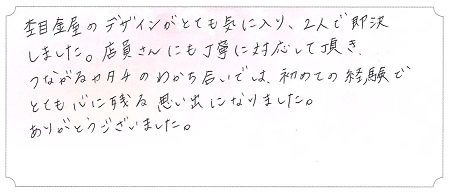 杢目金屋のデザインがとても気に入り、2人で即決
しました。店員さんにも丁寧に対応して頂き、
つながるカタチのわかち合いでは、初めての経験で
とても心に残る思い出になりました。
ありがとうございました。